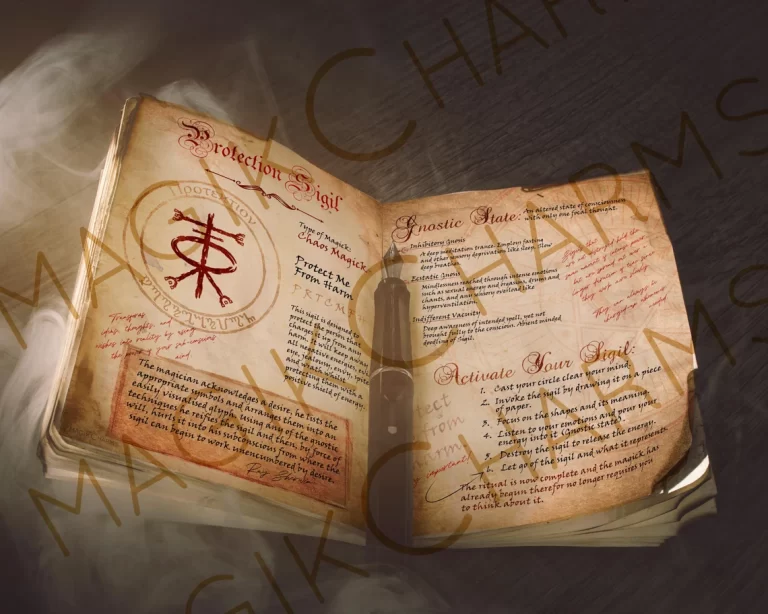 Protection Sigil
Προτεκτιον
Type of Magick:
Chaos Magick
Protect Me
From Harm
P R T C M F
This sigil is designed to
protect the person that
charges it up from any
harm. It will keep away
all negative energy, evil
eye, jealousy, envy, spite
protecting them with a
positive shield of energy.
The magician acknowledges a desire, he lists the
appropriate symbols and arranges them into an
easily visualised glyph. Using any of the gnostic
techniques he reifies the sigil and then, by force of
will, hurls it into his subconscious from where the
sigil can begin to work unencumbered by desire.
Gnostic State:
An altered state of consciousness
with only one focal thought.
Inhibitory Gnosis
A deep meditation trance. Employs fasting
and other sensory deprivation like sleep. Slow
deep breather.
Ecstatic Gnosis
Mindlessness reached through intense emotions
such as sexual energy and orgasms, drums and
chants, and any sensory overload like
hyperventilation.
Indifferent Vacuity
Deep awareness of intended spell, yet not
brought fully to the conscious. Absent minded
doodling of Sigil.
Activate Your Sigil:
1. Cast your circle clear your mind.
2. Invoke the sigil by drawing it on a piece
of paper.
3. Focus on the shapes and its meaning
4. Listen to your emotions and pour your
energy into it (Gnostic state).
5. Destroy the sigil to release the energy.
6. Let go of the sigil and what it represents.
The ritual is now complete and the magick has
already begun therefor no longer requires you
to think about it.
MAGIKCHARMS
MAGIKCHARMS
MAGIKCHARMS